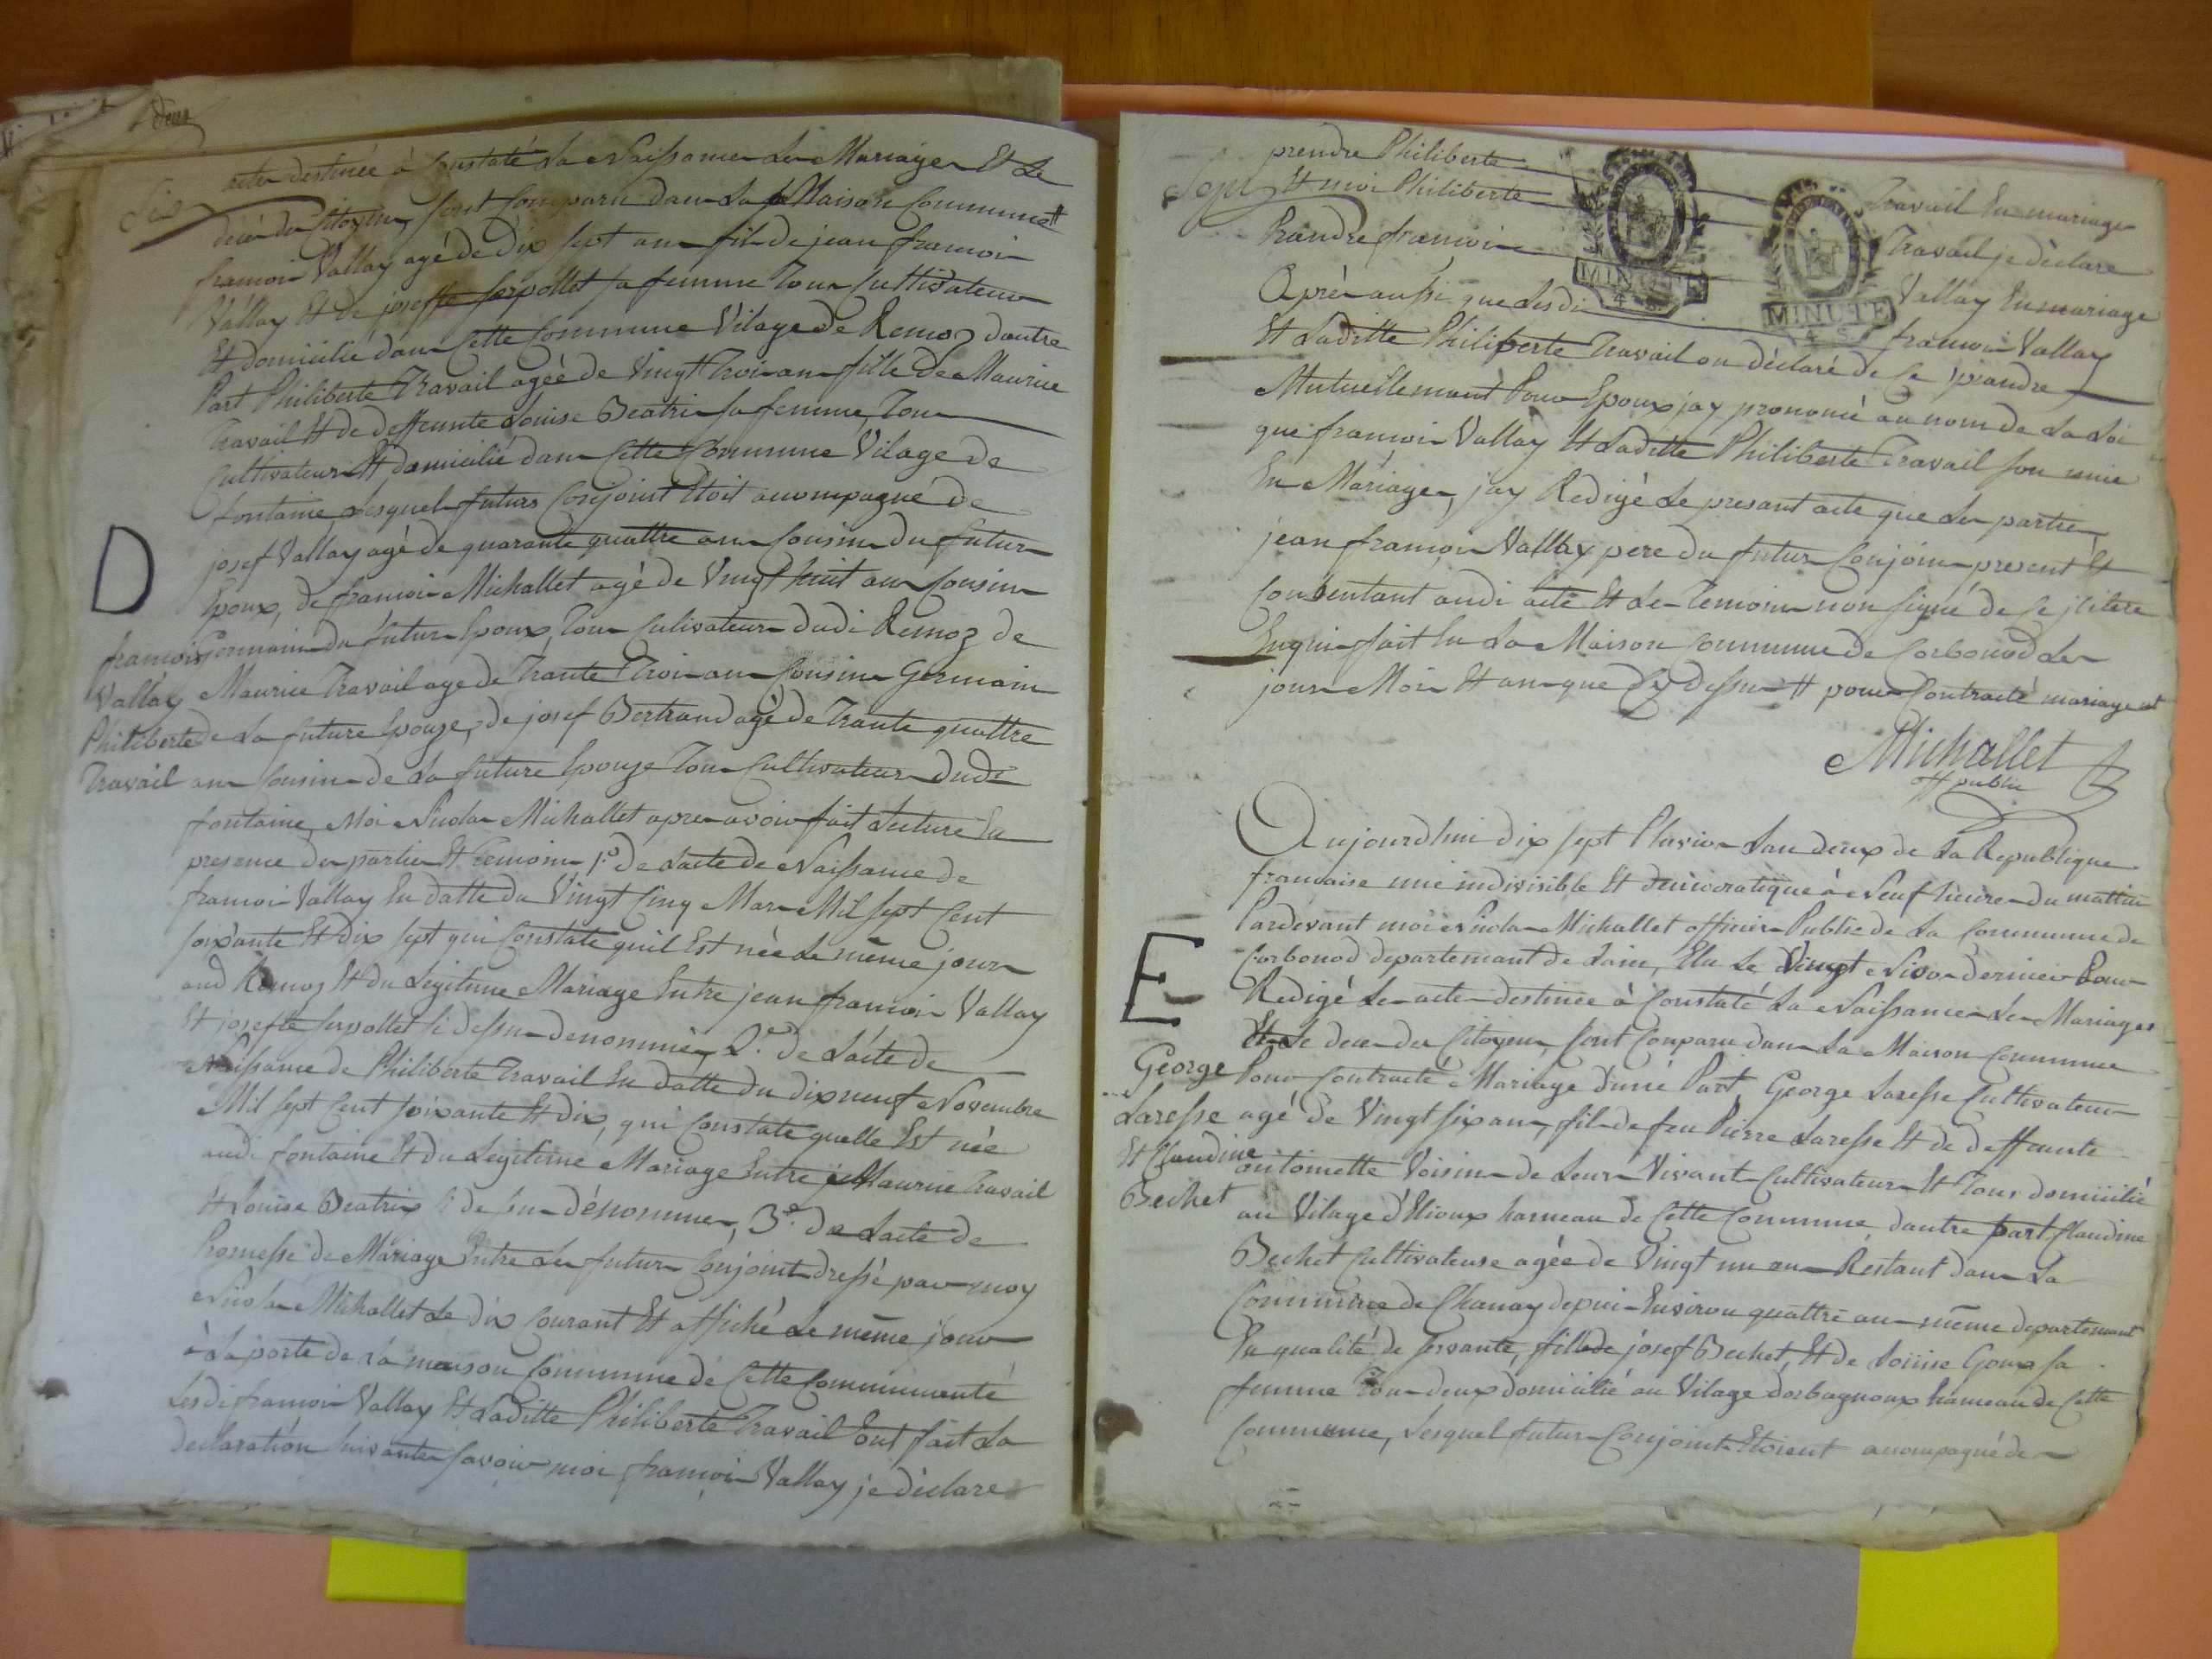 deux
Six
actes destinée à Constaté La Naissance Les Mariages Et Le
décès des Citoyens, sont Comparu dans La Maison Commune #
francois Vallay agé de dix sept ans fils de jean francois
Vallay Et de joseffe serpollet sa femme Tous Cultivateurs
Et domicilié dans Cette Commune Vilage de Remoz dautre
Part Philiberte Travail agée de Vingt Trois ans fille de Maurice
Travail Et de deffunte Louise Beatrix sa femme, Tous
Cultivateurs Et domicilié dans Cette Commune Vilage de
fontaine, Lesquels futurs Conjoint Etoit acompagné de
josef Vallay agé de quarante quattre ans Cousin du futur
Epoux, de francois Michallet agé de Vingt huit ans Cousin
Germain du futur Epoux, Tous Culivateurs dudi Remoz de
Maurice Travail agé de Trante Trois ans Cousin Germain
de La future Epouze, de josef Bertrand agé de Trante quattre
ans Cousin de La future Epouze Tous Cultivateurs dudi
fontaine, Moi Nicolas Michallet apres avoir fait Lecture En
presence des parties Et Temoins, 1.º de Lacte de Naissance de
francois Vallay En datte du Vingt Cinq Mars Mil sept Cent
soixante Et dix sept qui Constate quil Est née Le même jour
aud Remoz Et du Legitime Mariage Entre jean francois Vallay
Et josefte serpollet si dessus denommés, 2.º de Lacte de
Naissance de Philiberte Travail En datte du dix neuf Novembre
Mil sept Cent soixante Et dix, qui Constate quelle Est née
audi fontaine Et du Legitime Mariage Entre Maurice Travail
Et Louise Beatrix si dessus dénommés, 3.º de Lacte de
Promesse de Mariage Entre Les futurs Conjoints dressé par moy
Nicolas Michallet Le dix Courant Et affiché Le même jour
à La porte de La maison Commune de Cette Communauté
Lesdi francois Vallay Et Laditte Philiberte Travail Ont fait La
declaration suivante savoir moi francois Vallay je déclare
D
francois
Vallay
Philiberte
Travail
Sept
prendre Philiberte Travail En mariage
Et moi Philiberte Travail je déclare
Prandre francois Vallay En mariage
Après aussi que Lesdi francois Vallay
MINUTE
4 S.
MINUTE
4 S.
Et Laditte Philiberte Travail on déclaré de Ce prandre
Mutuellemant Pour Epoux jay prononcé au nom de La Loi
que francois Vallay Et Laditte Philiberte Travail son unie
En Mariage, jay Redigé Le presant acte que Les parties,
jean francois Vallay pere du futur Conjoins present Et
Consentant audi acte Et Les Temoins non signé de Ce
Enquis fait En La Maison Commune de Corbonod Les
jour Mois Et an que Cy dessus # pour Contracté mariage
Michallet
off public
Aujourdhui dix sept Pluvios Lan deux de La Republique
francaise une indivisible Et democratique à Neuf heures du mattin
Pardevant moi Nicolas Michallet officier Public de La Commune de
Corbonod departemant de Lain, Elu Le Vingt Nivos dernier Pour
Redigé Les actes destinée à Constaté La Naissance Les Mariages
Et Le deces des Citoyens, sont Comparu dans La Maison Commune
Pour Contracté Mariage dune Part, George Laresse Cultivateur
agé de Vingt six ans, fils de feu Pierre Laresse Et de deffunte
antoinette Voisin de Leurs Vivant Cultivateurs Et Tous domicilié
au Vilage d'Etioux hameau de Cette Commune, dautre part Claudine
Bechet Cultivateuse agée de Vingt un ans Restant dans La
Commune de Chanay depuis Environ quattre ans même departemant
En qualité de servante, fille de josef Bechet, Et de Louise Goux sa
femme Tous deux domicilié au Vilage dorbagnoux hameau de Cette
Commune, Lesquels futurs Conjoints Etoient acompagné de
E
George
Laresse
Et Claudine
Bechet